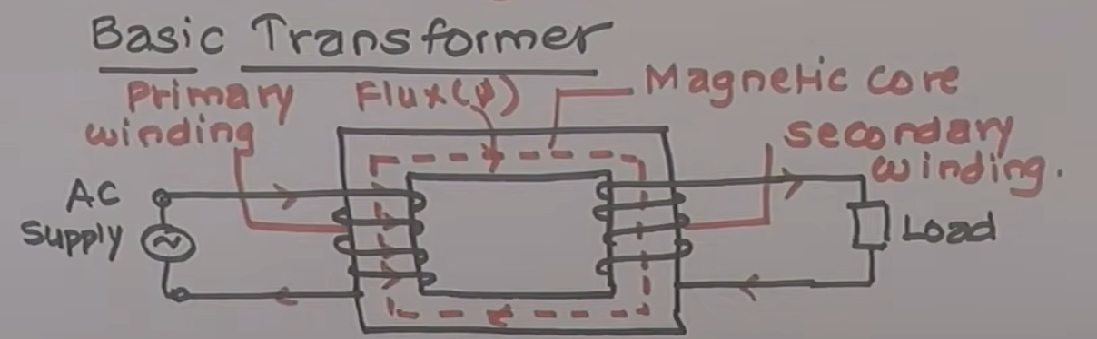 Basic Transformer
Primary
winding
Flux(ψ)
Magnetic core
secondary
winding.
AC
Supply
Load